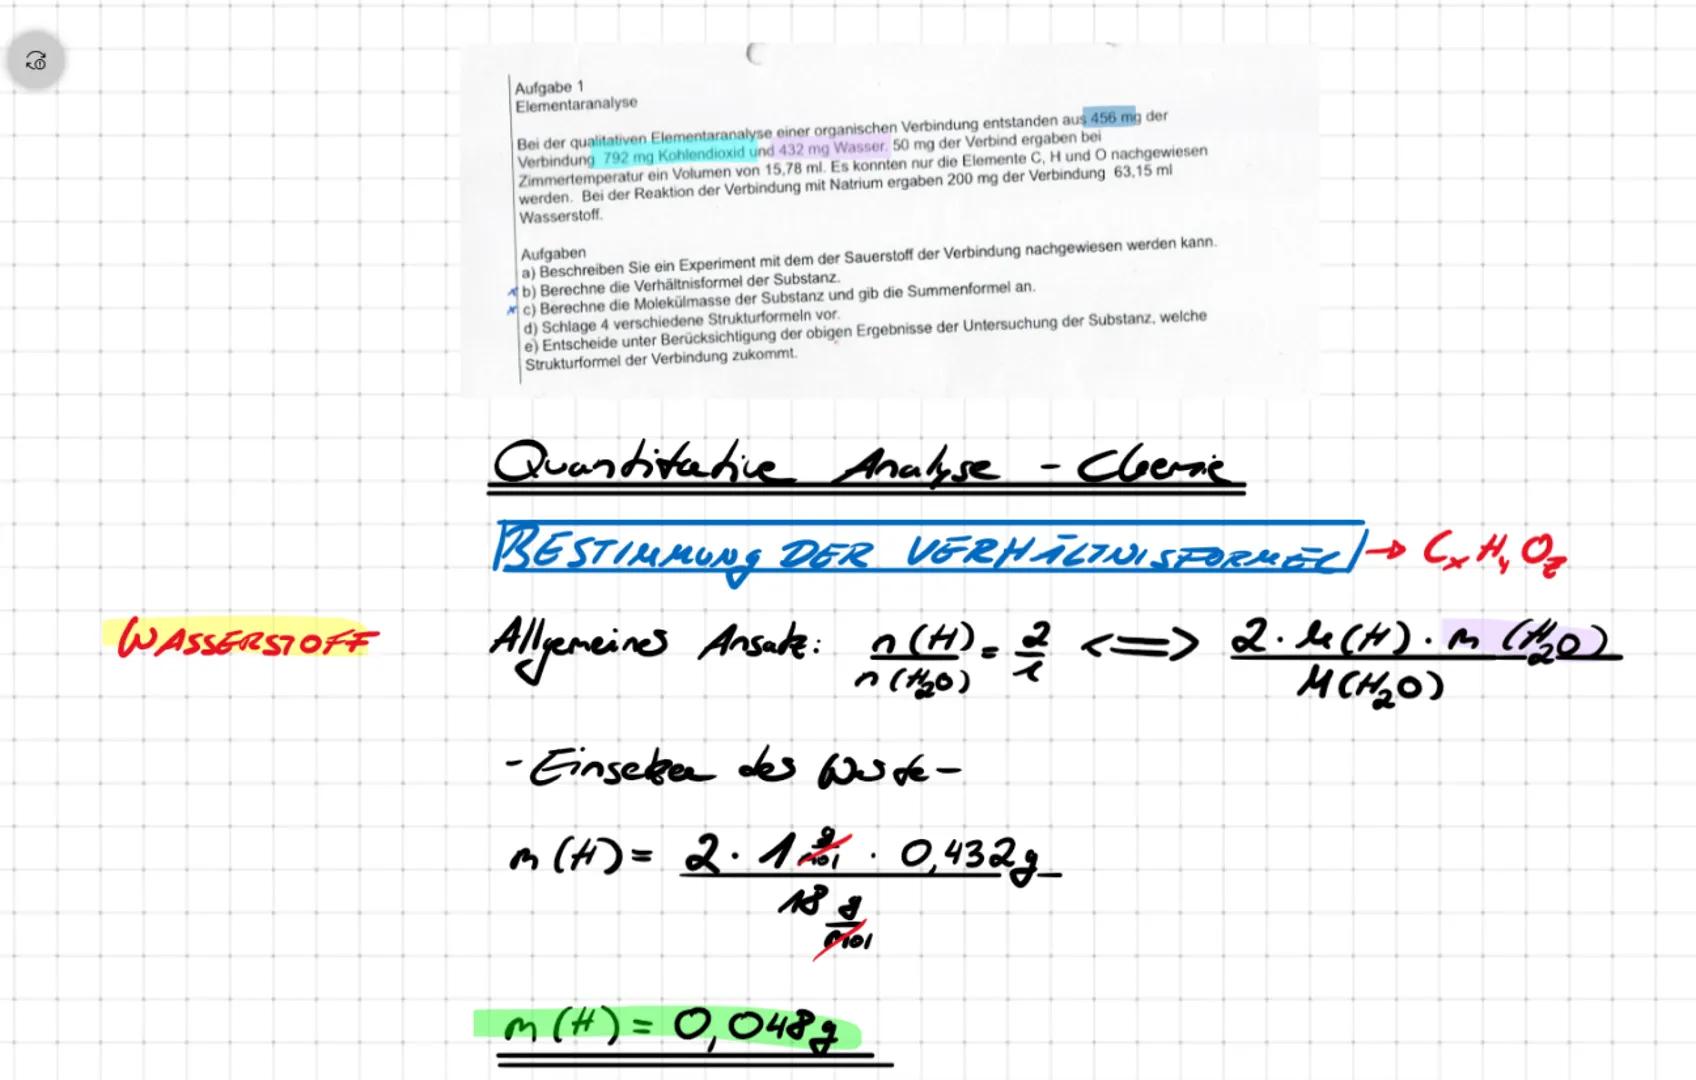 Aufgabe 1
Elementaranalyse
Bei der qualitativen Elementaranalyse einer organischen Verbindung entstanden aus 456 mg der
Verbindung 792 mg Kohlendioxid und 432 mg Wasser. 50 mg der Verbind ergaben bei
Zimmertemperatur ein Volumen von 15,78 ml. Es konnten nur die Elemente C, H und O nachgewiesen
werden. Bei der Reaktion der Verbindung mit Natrium ergaben 200 mg der Verbindung 63,15 ml
Wasserstoff.
Aufgaben
a) Beschreiben Sie ein Experiment mit dem der Sauerstoff der Verbindung nachgewiesen werden kann.
b) Berechne die Verhältnisformel der Substanz.
c) Berechne die Molekülmasse der Substanz und gib die Summenformel an.
d) Schlage 4 verschiedene Strukturformeln vor.
e) Entscheide unter Berücksichtigung der obigen Ergebnisse der Untersuchung der Substanz, welche
Strukturformel der Verbindung zukommt.
Quantitative Analyse - Chemie
BESTIMMUNG DER VERHÄLTNISFORMEL → CxHyOz
WASSERSTOFF
Allgemeines Ansatz: n(H)/n(H₂O) = 2/1 <=> 2·M(H)·m(H₂O)/M(H₂O)
- Einsetzen der Werte -
m(H) = 2·1 g/mol · 0,432g / 18 g/mol
m(H) = 0,048g